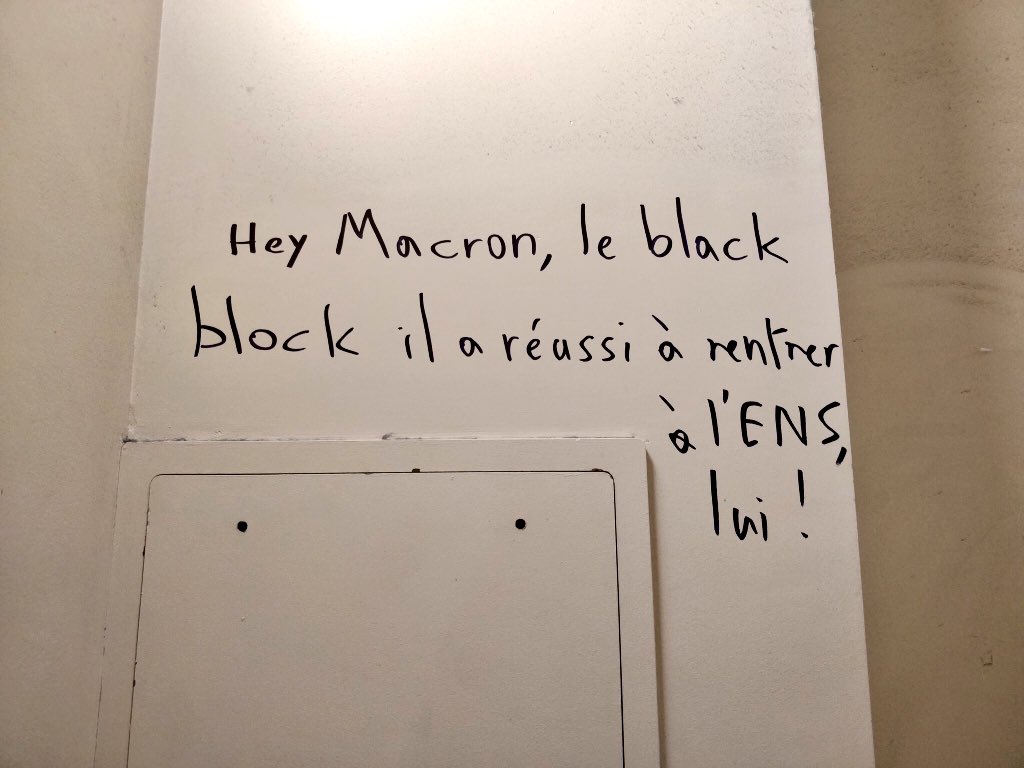 Hey Macron, le black
block il a réussi à rentrer
à l'ENS,
lui !